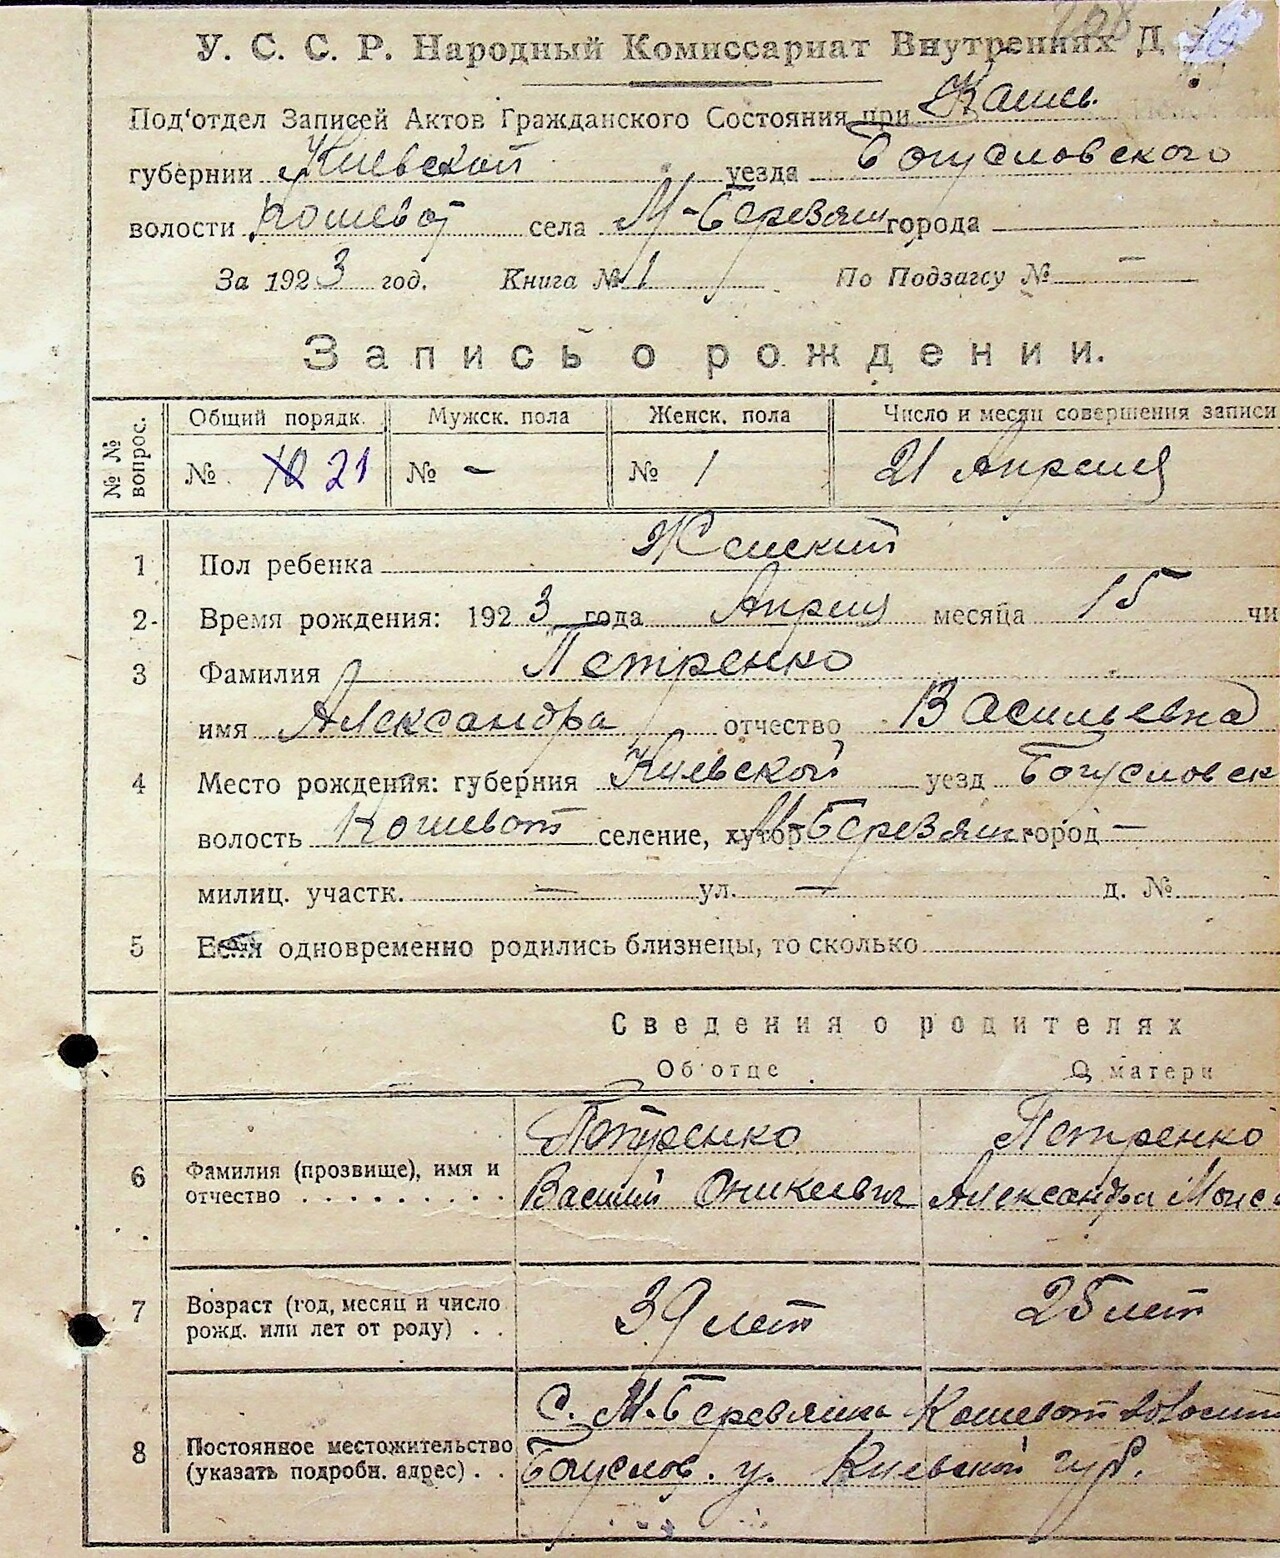 У. С. С. Р. Народный Комиссариат Внутренних Д
Под'отдел Записей Актов Гражданского Состояния при
губернии Киевской уезда Богусловского
волости Кошеват села М-Березян города
За 1923 год. Книга № 1 По Подзагсу № —
Запись о рождении.
№ № вопрос. Общий порядк. Мужск. пола Женск. пола Число и месяц совершения записи
№ 21 № - № 1 21 Апреля
1 Пол ребенка Женский
2 Время рождения: 1923 года Апреля месяца 15 чи
3 Фамилия Петренко
имя Александра отчество Васильевна
4 Место рождения: губерния Киевской уезд Богусловск
волость Кошеват селение, хутор М-Березян город —
милиц. участк. — ул. — д. №
5 Если одновременно родились близнецы, то сколько
Сведения о родителях
Об отце О матери
6 Фамилия (прозвище), имя и отчество Петренко Василий Оникиевич Петренко Александра Моисе
7 Возраст (год, месяц и число рожд. или лет от роду) 39 лет 25 лет
8 Постоянное местожительство (указать подробн. адрес) С. М-Березянка Кошеват волости
Богуслов. у. Киевской губ.